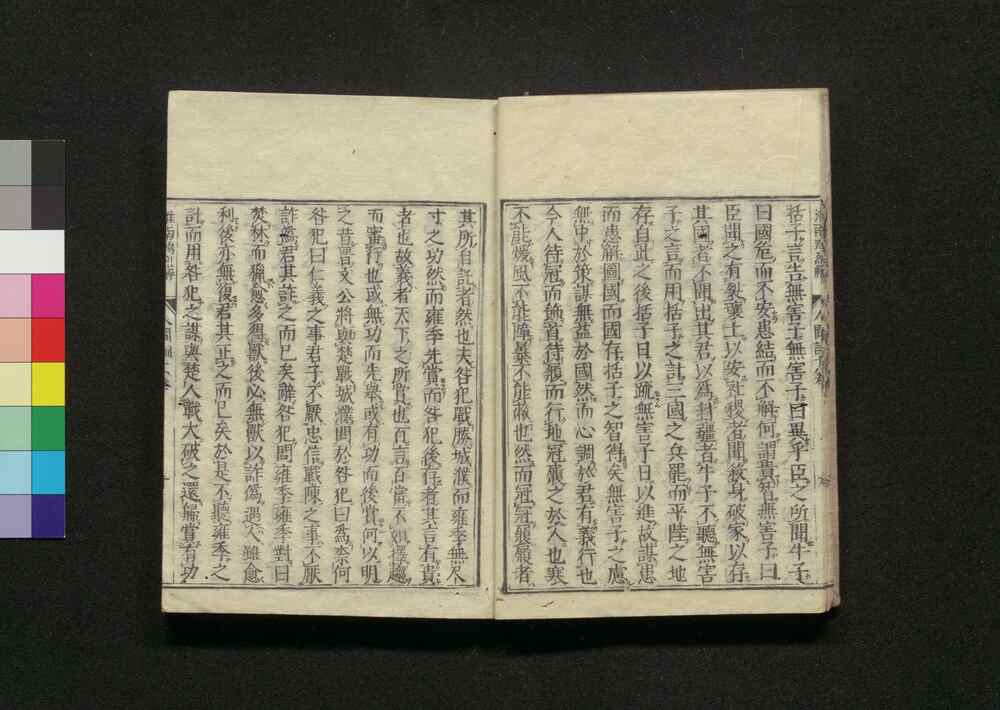 括子言告無害子無害子曰異乎臣之所聞牛子
曰國危而不安患結而不解何謂貴智無害子曰
臣聞之有裂壤土以安社稷者聞殺身破家以存
其國者不聞出其君以為封疆者牛子不聽無害
子之言而用括子之計三國之兵罷而平陸之地
存自此之後括子日以疏無害子日以進故謀患
而患解圖國而國存括子之智得矣無害子之慮
無中於策謀無益於國然而心調於君有義行也
今人待冠而飾首待履而行地冠履之於人也寒
不能煖風不能障暴不能蔽也然而冠冠履履者
其所自託者然也夫咎犯戰勝城濮而雍季無尺
寸之功然而雍季先賞而咎犯後存者其言有貴
者也故義者天下之所貴也百言百當不如擇趨
而審行也或無功而先舉或有功而後賞何以明
之昔晉文公將與楚戰城濮問於咎犯曰為奈何
咎犯曰仁義之事君子不厭忠信戰陳之事不厭
詐偽君其詐之而已矣辭咎犯問雍季雍季對曰
焚林而獵愈多得獸後必無獸以詐偽遇人雖愈
利後亦無復君其正之而已矣於是不聽雍季之
計而用咎犯之謀與楚人戰大破之還歸賞有功